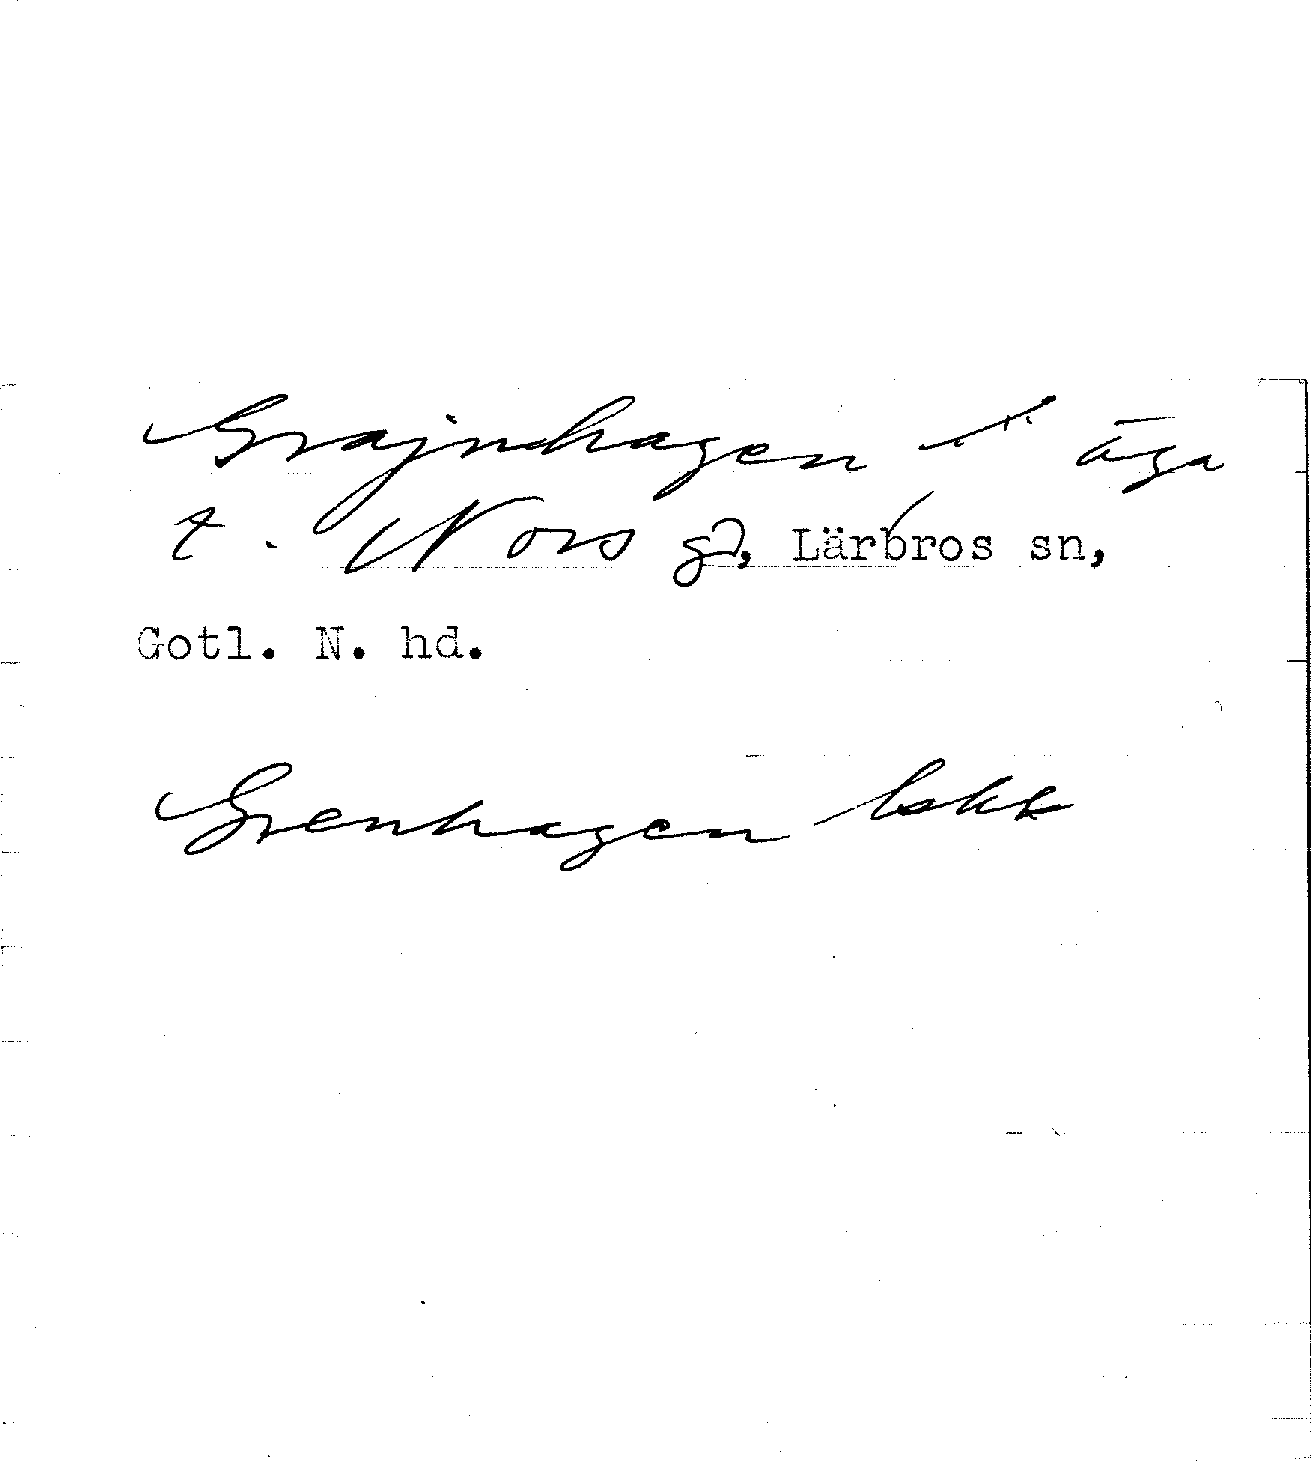 Grajnhagen äga
t. Nors gd, Lärbros sn,
Gotl. N. hd.
Grenhagen lskk